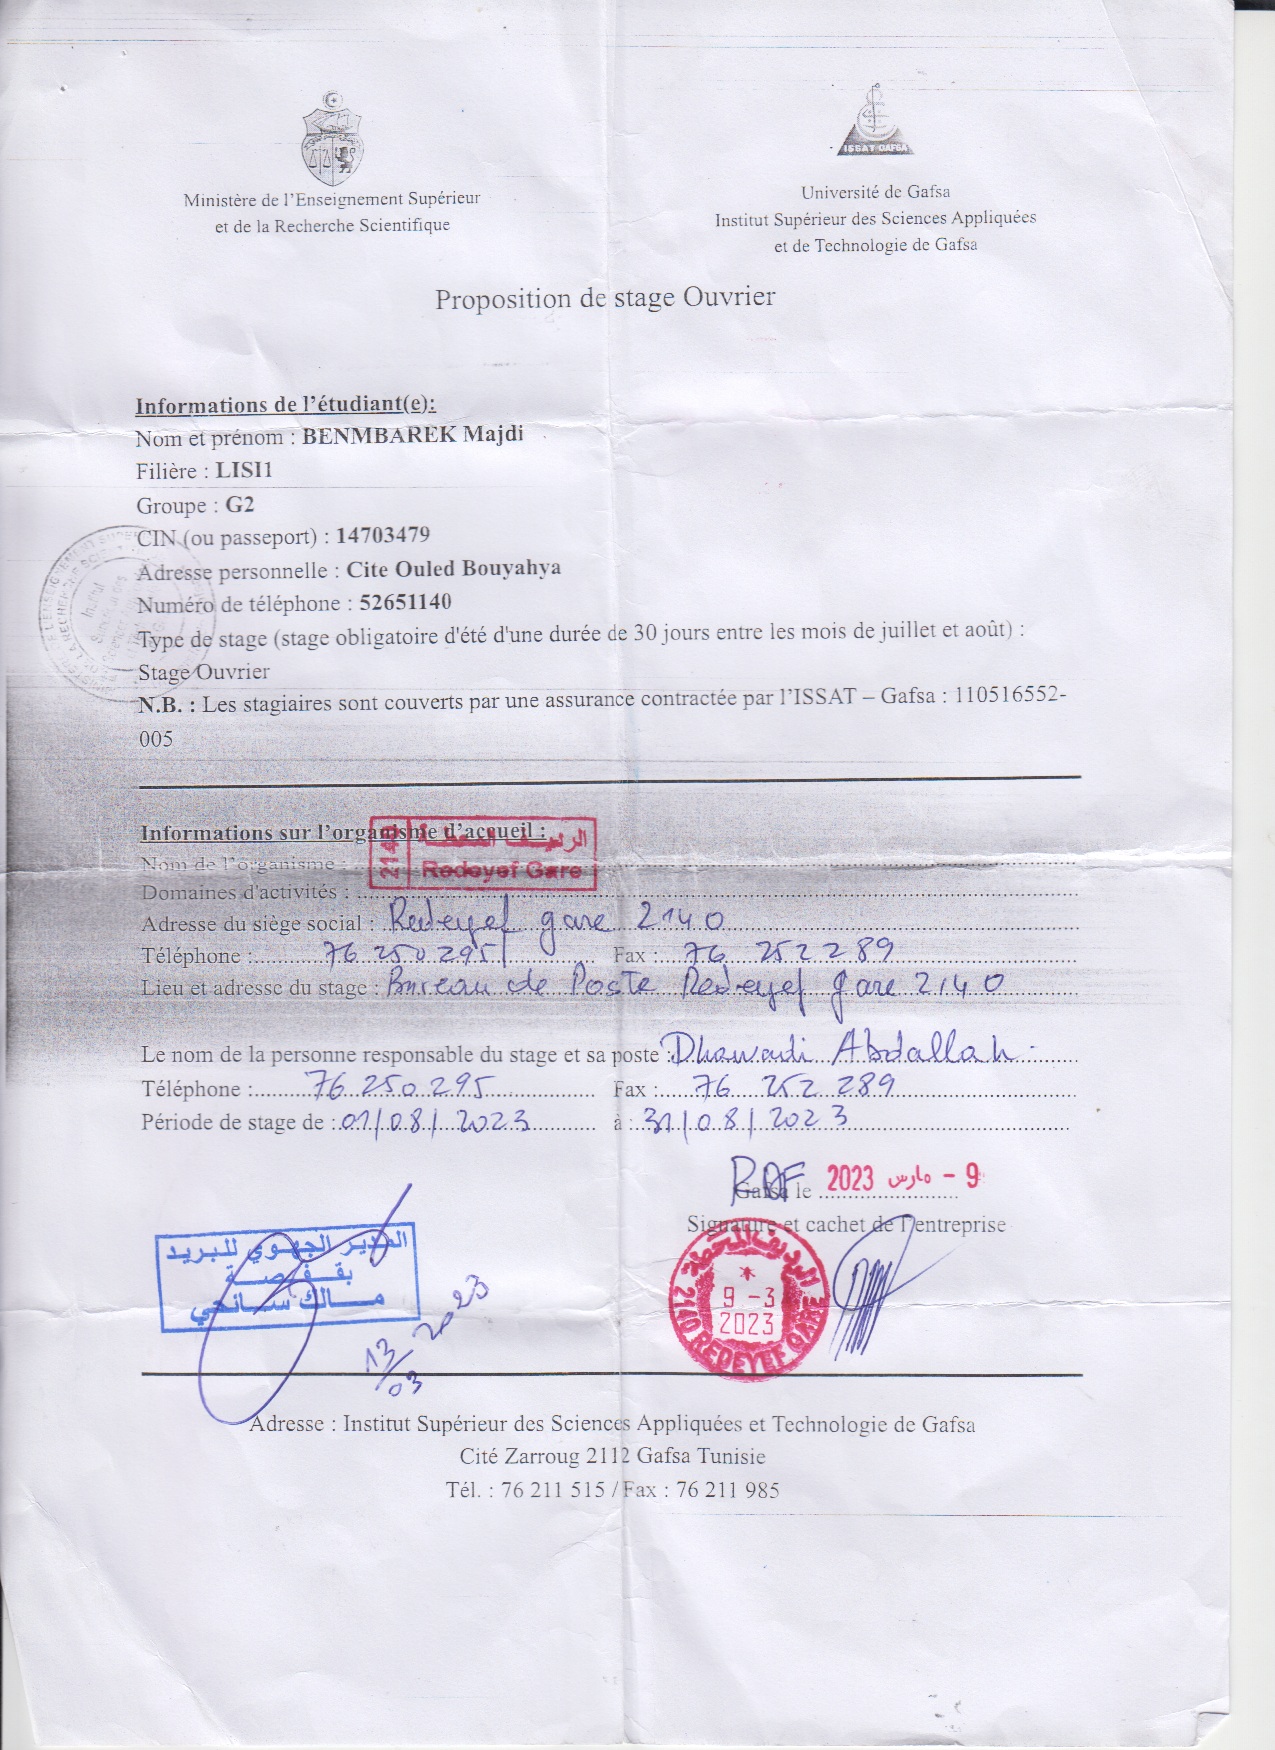 Ministère de l'Enseignement Supérieur
et de la Recherche Scientifique
ISSAT GAFSA
Université de Gafsa
Institut Supérieur des Sciences Appliquées
et de Technologie de Gafsa
Proposition de stage Ouvrier
Informations de l'étudiant(e):
Nom et prénom : BENMBAREK Majdi
Filière : LISI1
Groupe : G2
CIN (ou passeport) : 14703479
Adresse personnelle : Cite Ouled Bouyahya
Numéro de téléphone : 52651140
Type de stage (stage obligatoire d'été d'une durée de 30 jours entre les mois de juillet et août) :
Stage Ouvrier
N.B. : Les stagiaires sont couverts par une assurance contractée par l'ISSAT – Gafsa : 110516552-
005
Informations sur l'organisme d'accueil :
Nom de l'organisme :
2140 الرديف المحطة
Redeyef Gare
Domaines d'activités :
Adresse du siège social : Redeyef gare 2140
Téléphone : 76 250 295 Fax : 76 252 289
Lieu et adresse du stage : Bureau de Poste Redeyef gare 2140
Le nom de la personne responsable du stage et sa poste : Dhawadi Abdallah
Téléphone : 76 250 295 Fax : 76 252 289
Période de stage de : 01/08/2023 à : 31/08/2023
RDF
Gafsa le 9 - مارس 2023
Signature et cachet de l'entreprise
المدير الجهوي للبريد
بقفصة
مالك سانحي
13/03 2023
الرديف المحطة
9 -3
2023
2140 REDEYEF GARE
Adresse : Institut Supérieur des Sciences Appliquées et Technologie de Gafsa
Cité Zarroug 2112 Gafsa Tunisie
Tél. : 76 211 515 / Fax : 76 211 985